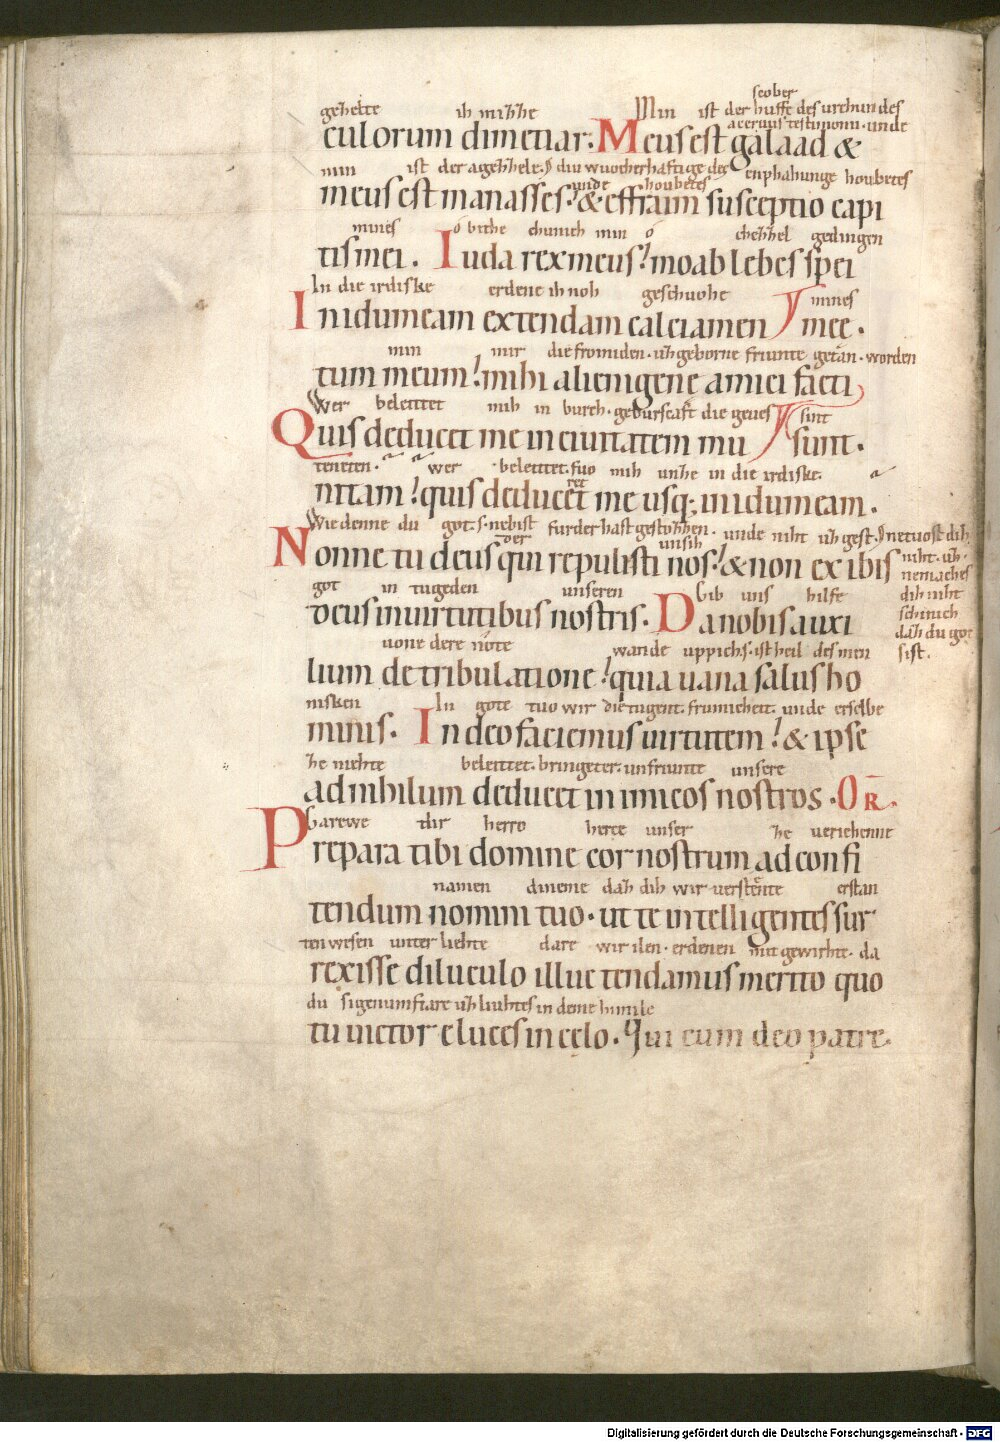 scober
gezelte ih mizzhe Min ist der huffe des urchundes
acervus testimonii. unde
culorum dimetiar. Meus est galaad &
min ist der agezzhele. diu wuocherhaftige des enphahunge houbetes
unde houbetes
meus est manasses. & effraim susceptio capi
mines o bithe chunich min o chezzel gedingen
tis mei. Iuda rex meus. moab lebes spei
In die irdiske erdene ih noh geschuohe mines
In idumeam extendam calciamen mee.
min mir die fromiden. uzgeborne friunte getan. worden
tum meum. mihi alienigene amici facti
Wer beleittet mih in burch. geburscaft die geues sint
Quis deducet me in ciuitatem mu sunt.
teneten. wer beleittet. fuo mih unze in die irdiske.
ret
nitam. quis deducet me usq; in idumeam.
Wie denne du got. s. nebist furder hast gestozzen. unde niht uzgest. netuost dih
der unsih
Nonne tu deus qui repulisti nos. & non exibis
niht. uz.
nemaches
got in tugeden unseren Gib uns hilfe dih niht
deus in uirtutibus nostris. Da nobis auxi
schinich
daz du got
uone dere note wande uppich. s. ist heil des men sist.
lium de tribulatione. quia uana salus ho
nisken In gote tuo wir die tugent. frumicheit. unde er selbe
minis. In deo faciemus uirtutem. & ipse
he niehte beleittet. bringeter. unfriunte unsere
ad nihilum deducet inimicos nostros. OR.
Garewe thir herro herce unser he ueriehenne
Prepara tibi domine cor nostrum ad confi
namen dineme daz dih wir verstente erstan
tendum nomini tuo. ut te intelligentes sur
ten wesen unter liehte dare wir ilen. erdenen mit gewirhte. da
rexisse diluculo illuc tendamus merito quo
du sigenumftare uz liuhtes in deme himile
tu uictor eluces in celo. Qui cum deo patre.
Digitalisierung gefördert durch die Deutsche Forschungsgemeinschaft - DFG